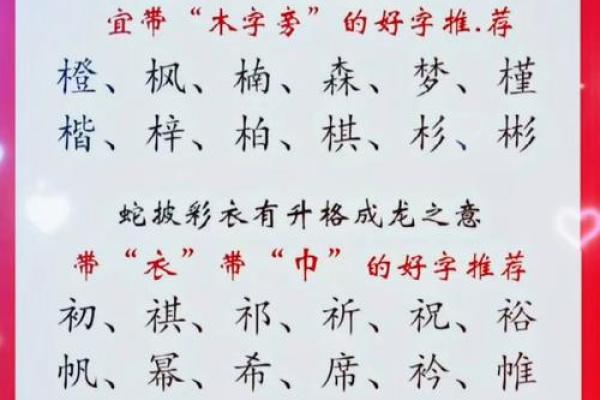 宜带“木字旁”的好字推.荐
橙、枫、楠、森、梦、槿
楷、梓、柏、棋、杉、彬
蛇披彩衣有升格成龙之意
带“衣”带“巾”的好字推荐
初、祺、祁、祈、祝、裕
帆、幂、希、席、衿、帷